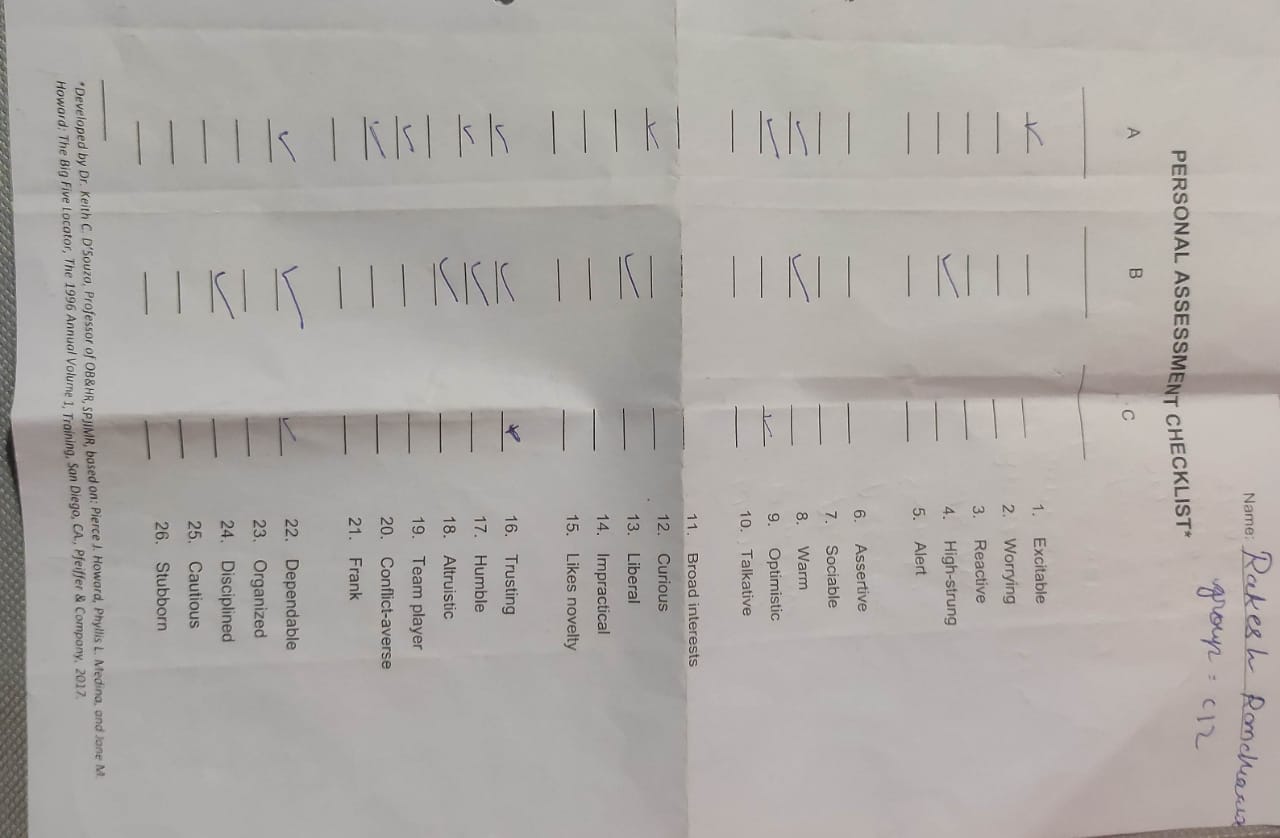 Name: Rakesh
group = C12
PERSONAL ASSESSMENT CHECKLIST*
A B C
1. Excitable
2. Worrying
3. Reactive
4. High-strung
5. Alert
6. Assertive
7. Sociable
8. Warm
9. Optimistic
10. Talkative
11. Broad interests
12. Curious
13. Liberal
14. Impractical
15. Likes novelty
16. Trusting
17. Humble
18. Altruistic
19. Team player
20. Conflict-averse
21. Frank
22. Dependable
23. Organized
24. Disciplined
25. Cautious
26. Stubborn
*Developed by Dr. Keith C. D'Souza, Professor of OB&HR, SPJIMR, based on: Pierce J. Howard, Phyllis L. Medina, and Jane M.
Howard: The Big Five Locator, The 1996 Annual Volume 1, Training, San Diego, CA, Pfeiffer & Company, 2017.